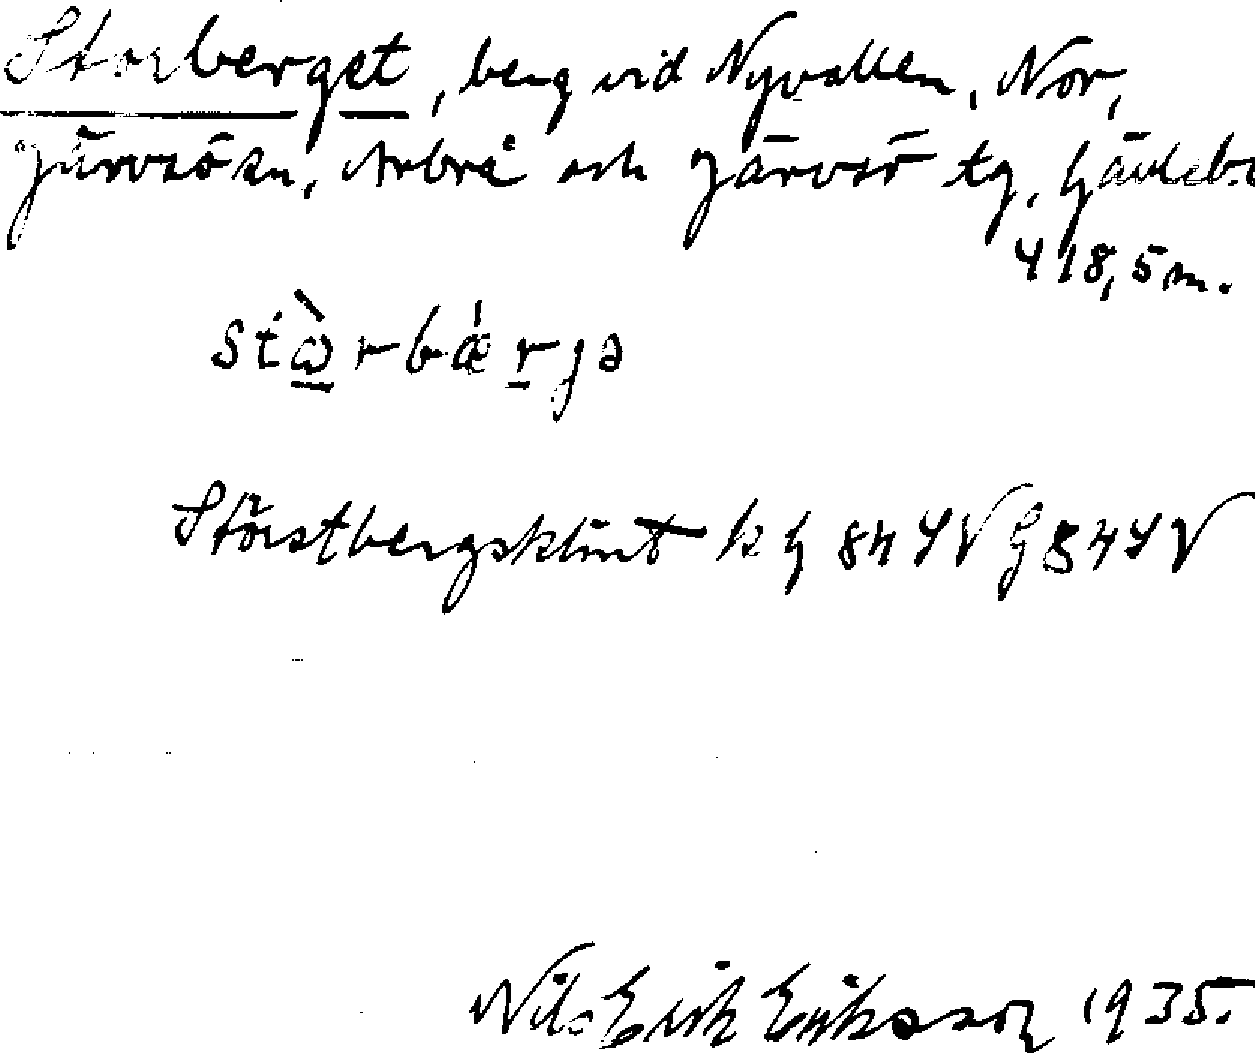 Storberget, berg vid Nyvallen, Nor,
Järvsö sn, Arbrå och Järvsö tg, Gävleb.l
418,5 m.
stὼ̲rbǽr̲jə
Störstbergsklint k G 844V G 844V
Nils Erik Eriksson 1935.